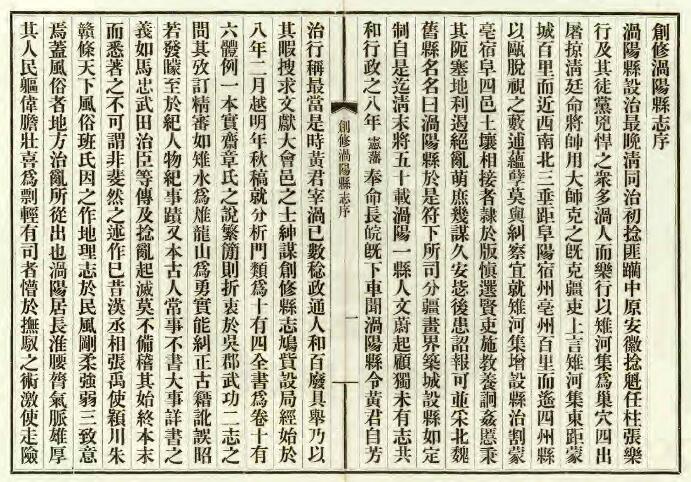 創修渦陽縣志序
渦陽縣設治最晚清同治初捻匪躪中原安徽捻魁任柱張樂
行及其徒黨兇悍之衆多渦人而樂行以雉河集爲巢穴四出
屠掠清廷命將帥用大師克之旣克疆吏上言雉河集東距蒙
城百里而近西南北三垂距阜陽宿州亳州百里而遙四州縣
以甌脫視之藪逋蘊孽莫與糾察宜就雉河集增設縣治割蒙
亳宿阜四邑土壤相接者隸於版愼選賢吏施教養詗姦慝秉
其阨塞地利遏絕亂萌庶幾謀久安毖後患詔報可並采北魏
舊縣名名曰渦陽縣於是符下所司分疆畫界築城設縣如定
制自是迄清末將五十載渦陽一縣人文蔚起顧獨未有志共
和行政之八年憲藩奉命長皖旣下車聞渦陽縣令黃君自芳
創修渦陽縣志序
一
治行稱最當是時黃君宰渦已數稔政通人和百廢具舉乃以
其暇搜求文獻大會邑之士紳謀創修縣志鳩貲設局經始於
八年二月越明年秋稿就分析門類爲十有四全書爲卷十有
六體例一本實齋章氏之說繁簡則折衷於吳郡武功二志之
間其攷訂精審如雉水爲濰龍山爲勇實能糾正古籍訛誤昭
若發矇至於紀人物紀事蹟又本古人常事不書大事詳書之
義如馬忠武田治臣等傳及捻亂起滅莫不備稽其始終本末
而悉著之不可謂非斐然之述作巳昔漢丞相張禹使潁川朱
贛條天下風俗班氏因之作地理志於民風剛柔強弱三致意
焉蓋風俗者地方治亂所從出也渦陽居長淮腰膂氣脈雄厚
其人民軀偉膽壯喜爲剽輕有司者懵於撫馭之術激使走險